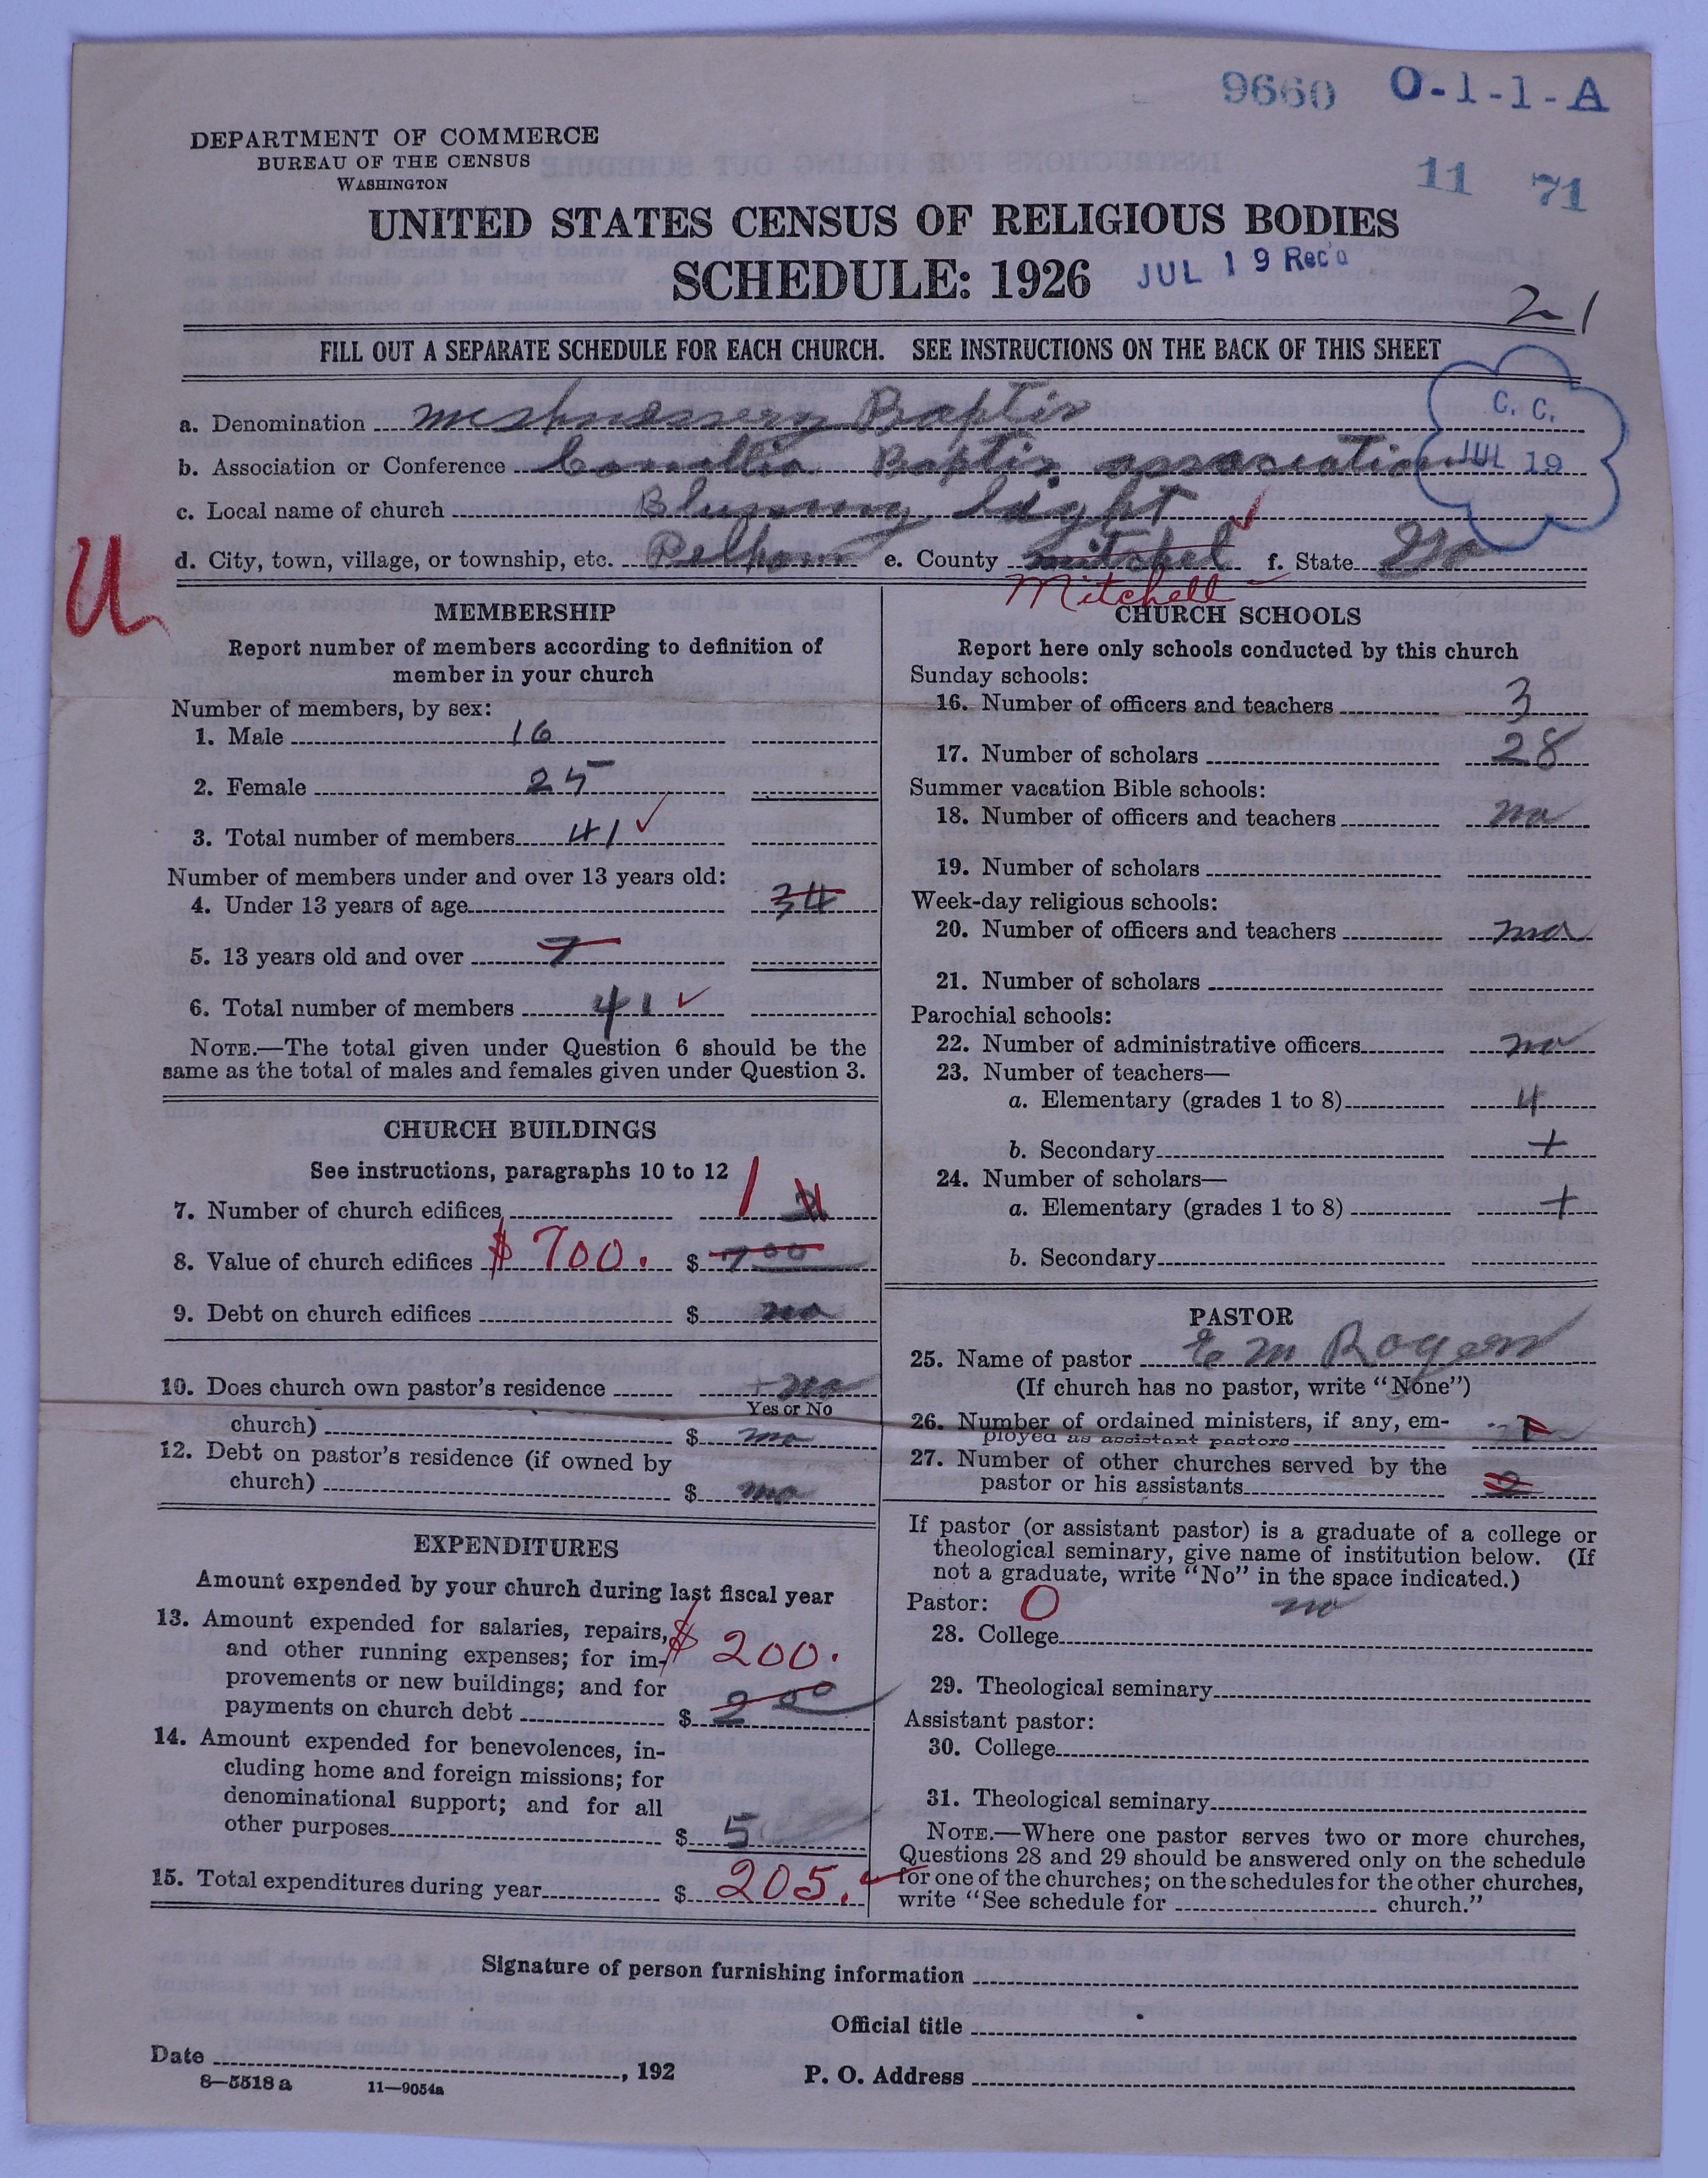 9660 O-1-1-A
DEPARTMENT OF COMMERCE
BUREAU OF THE CENSUS
WASHINGTON
11 71
UNITED STATES CENSUS OF RELIGIOUS BODIES
SCHEDULE: 1926 JUL 19 Rec'd
21
FILL OUT A SEPARATE SCHEDULE FOR EACH CHURCH. SEE INSTRUCTIONS ON THE BACK OF THIS SHEET
C. C.
JUL 19
a. Denomination Baptis
b. Association or Conference Baptis association
c. Local name of church Blumming light
d. City, town, village, or township, etc. Pelham e. County mitchel f. State Ga
Mitchell
U
MEMBERSHIP
Report number of members according to definition of
member in your church
Number of members, by sex:
1. Male 16
2. Female 25
3. Total number of members 41
Number of members under and over 13 years old:
4. Under 13 years of age 34
5. 13 years old and over 7
6. Total number of members 41
NOTE.—The total given under Question 6 should be the
same as the total of males and females given under Question 3.
CHURCH BUILDINGS
See instructions, paragraphs 10 to 12
7. Number of church edifices 1
8. Value of church edifices $700. $ 700
9. Debt on church edifices $ no
10. Does church own pastor's residence no
Yes or No
church) $ no
12. Debt on pastor's residence (if owned by
church) $ no
EXPENDITURES
Amount expended by your church during last fiscal year
13. Amount expended for salaries, repairs,
and other running expenses; for im- $ 200.
provements or new buildings; and for
payments on church debt $ 200
14. Amount expended for benevolences, in-
cluding home and foreign missions; for
denominational support; and for all
other purposes $ 5
15. Total expenditures during year $ 205.
CHURCH SCHOOLS
Report here only schools conducted by this church
Sunday schools:
16. Number of officers and teachers 3
17. Number of scholars 28
Summer vacation Bible schools:
18. Number of officers and teachers no
19. Number of scholars
Week-day religious schools:
20. Number of officers and teachers no
21. Number of scholars
Parochial schools:
22. Number of administrative officers no
23. Number of teachers—
a. Elementary (grades 1 to 8) 4
b. Secondary +
24. Number of scholars—
a. Elementary (grades 1 to 8) +
b. Secondary
PASTOR
25. Name of pastor E M Rogers
(If church has no pastor, write "None")
26. Number of ordained ministers, if any, em-
ployed as assistant pastors
27. Number of other churches served by the
pastor or his assistants 2
If pastor (or assistant pastor) is a graduate of a college or
theological seminary, give name of institution below. (If
not a graduate, write "No" in the space indicated.)
Pastor: O no
28. College
29. Theological seminary
Assistant pastor:
30. College
31. Theological seminary
NOTE.—Where one pastor serves two or more churches,
Questions 28 and 29 should be answered only on the schedule
for one of the churches; on the schedules for the other churches,
write "See schedule for church."
Signature of person furnishing information
Official title
Date , 192 P. O. Address
8—5518 a 11—9054a